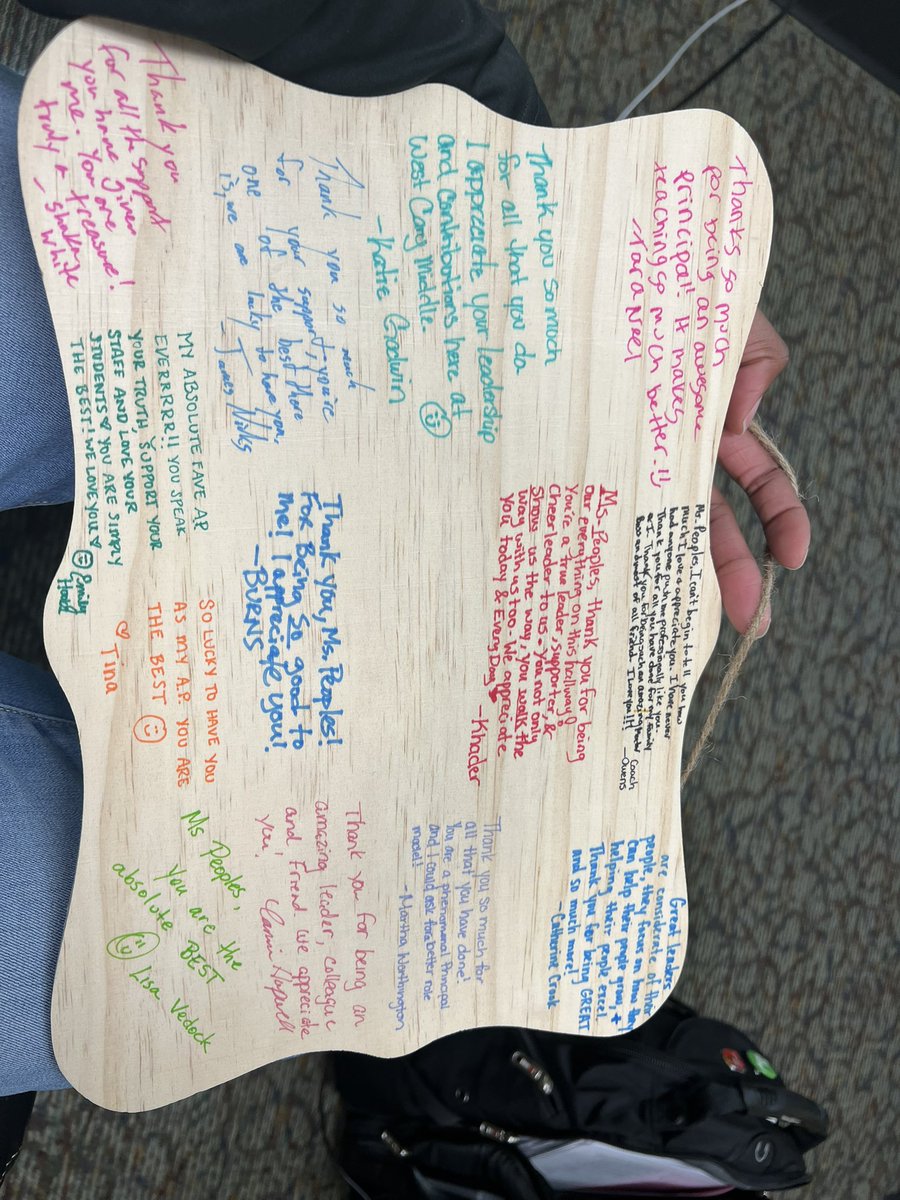 Thanks so much
for being an awesome
principal!! It makes
teaching so much better. !!
-Tara Neel
Mr. Peoples, I can't begin to tell you how
much I love & appreciate you. I have never
had anyone push me professionally like you.
Thank you for all you have done for my family
& I. Thank you for being such an amazing
boss and most of all friend. I love you!!!
Coach
Owens
Great leaders
are considerate of their
people, they focus on how they
can help their people grow, +
helping their people excel.
Thank you for being GREAT
and so much more!
-Catherine Cronk
Thank you so much
for all that you do.
I appreciate your leadership
and contributions here at
West Cary Middle.
-Katie Goodwin
Ms. Peoples, thank you for being
our everything on this hallway!
You're a true leader, supporter, &
cheerleader to us, you not only
show us the way, you walk the
way with us too. We appreciate
you today & Every Day
-Khader
Thank you so much for
all that you have done!
You are a phenomenal Principal
and I could ask for a better role
model!
-Martha Worthington
Thank you so much
for your support, you're
one of the best there
is, we are lucky to have you.
James Hinks
Thank you, Ms. Peoples!
For Being so good to
me! I appreciate you!
-BURNS
Thank you for being an
amazing leader, colleague
and Friend we appreciate
you!
Thank you
for all the support
you have given
me. You are
truly a treasure!
- Shakenja
White
MY ABSOLUTE FAVE AP
EVERRRR!! YOU SPEAK
YOUR TRUTH, SUPPORT YOUR
STAFF AND LOVE YOUR
STUDENTS ♡ YOU ARE SIMPLY
THE BEST! WE LOVE YOU ♡
Emily
SO LUCKY TO HAVE YOU
AS MY A.P. YOU ARE
THE BEST
♡ Tina
Ms Peoples,
You are the
absolute BEST
Lisa Vedock